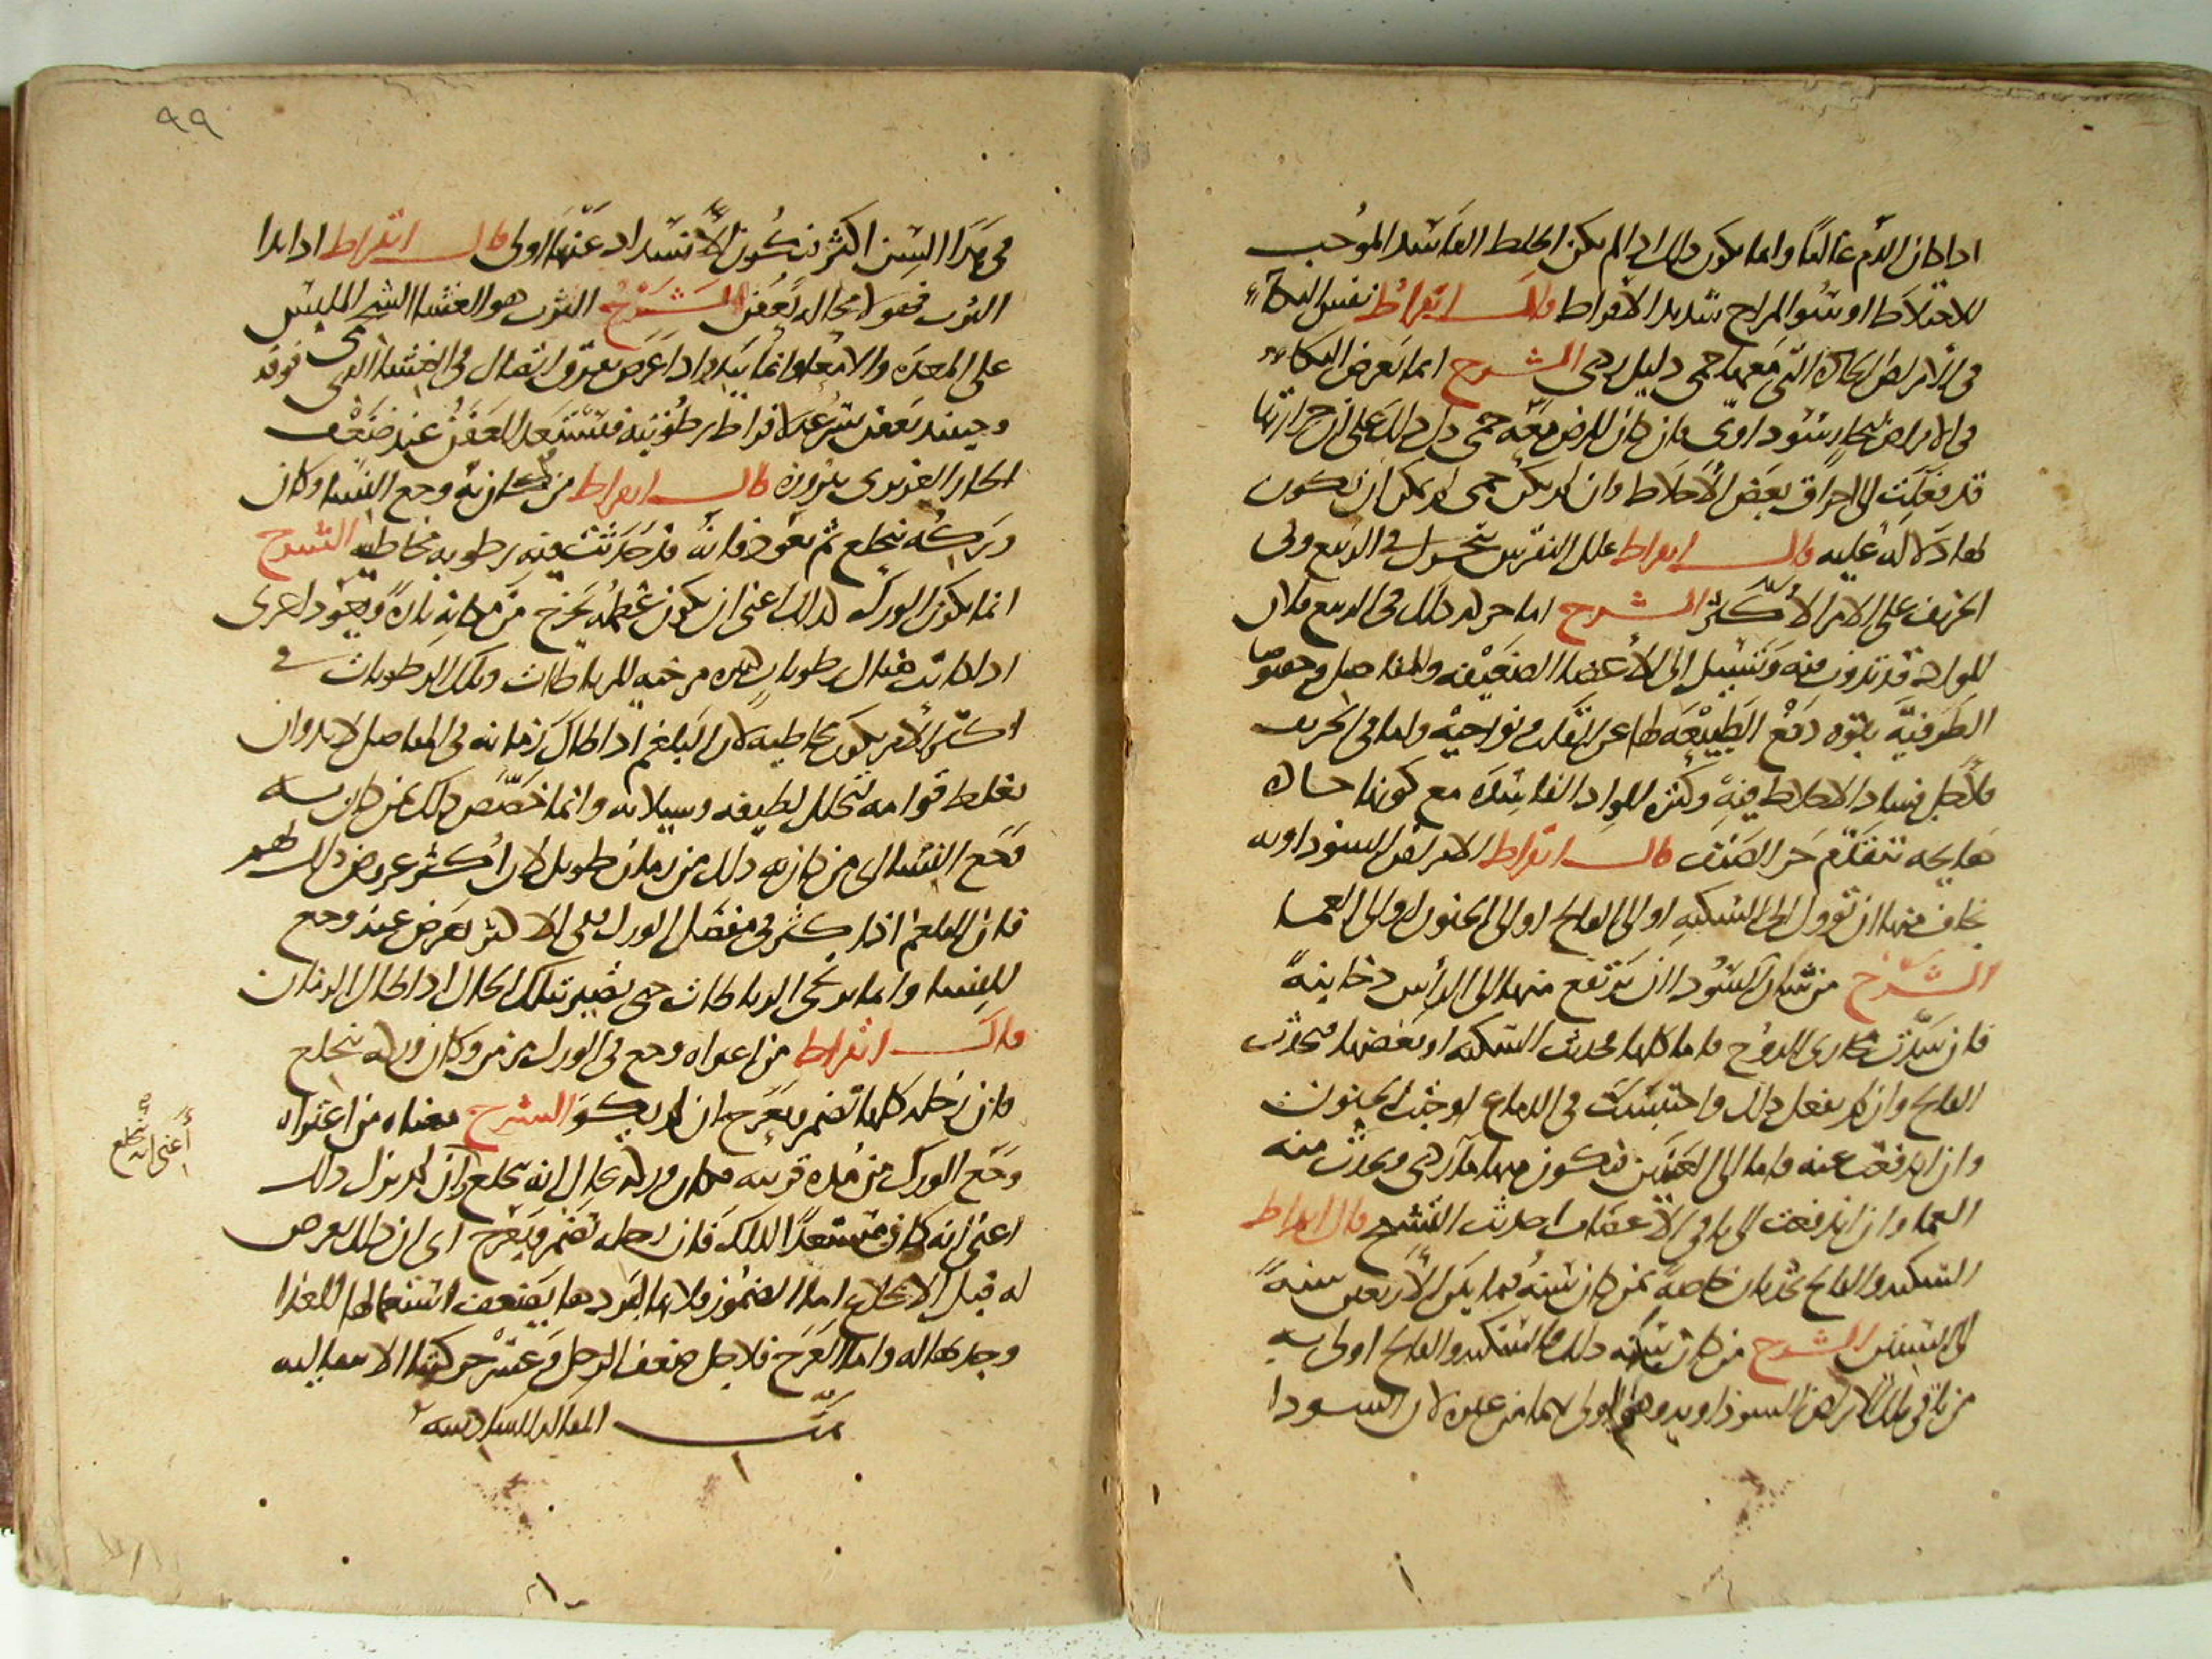 اذا كان الدم غالبا وانما يكون ذلك اذا لم يكن الخلط الفاسد الموجب
للاختلاط او سوء المزاج شديد الافراط قال ابقراط نفس البكاء
في الامراض الحادة التي معها حمى دليل ردي الشرح انما تعرض البكاء
في الامراض لبخار سوداوي فان كان المرض معه حمى دل ذلك على ان حرارتها
قد فعلت الى احراق بعض الاخلاط وان لم يكن حمى لم يمكن ان تكون
لها دلالة عليه قال ابقراط علل النقرس تتحرك في الربيع وفي
الخريف على الامر الاكثر الشرح اما حركة ذلك في الربيع فلان
المواد قد تذوب فيه وتسيل الى الاعضاء الضعيفة والمفاصل وخصوصا
الطرفية بقوة دفع الطبيعة لها عن القلب ونواحيه واما في الخريف
فلاجل فساد الاخلاط فيه وكثرة المواد الفاسدة مع كونها حادة
هايجة بتقدم حر الصيف قال ابقراط الامراض السوداوية
يخاف منها ان تؤول الى السكتة او الى الفالج او الى الجنون او الى العما
الشرح من شان السوداء ان يرتفع منها الى الراس دخانية
فان سدت مجاري الروح فاما كلها فيحدث السكتة او بعضها فيحدث
الفالج وان لم يفعل ذلك واحتبست في الدماغ اوجبت الجنون
وان اندفعت عنه فاما الى العينين فتكون منها ما ردي ويحدث منه
العما وان اندفعت الى باقي الاعضاء احدثت التشنج قال ابقراط
السكتة والفالج يحدثان خاصة بمن كان سنه فيما بين الاربعين سنة
الى الستين الشرح من كان سنه ذلك فالسكتة والفالج اولى به
من باقي تلك الامراض السوداوية وهو اولى بهما من غيره لان السودا
٩٩
في هذا السن اكثر فتكون الانسداد عنها اولى قال ابقراط اذا بدا
الثرب فهو لا محالة يعفن الشرح الثرب هو الغشا الشحمي الملبس
على المعدة والامعا وانما يبدوا اذا عرض تفرق اتصال في الغشا الذي فوقه
وحينئذ تعفن بسرعة لافراط رطوبته فتستعد للتعفن عند ضعف
الحار الغريزي ببروزه قال ابقراط من كان به وجع النسا وكان
وركه ينخلع ثم يعود فانه قد حدثت فيه رطوبة مخاطية الشرح
انما يكون الورك كذلك اعني ان يكون عظمه يخرج من مكانه تارة ويعود اخرى
اذا كانت هناك رطوبات كثيرة مرخية للرباطات وتلك الرطوبات في
اكثر الامر يكون مخاطية لان البلغم اذا طال زمانه في المفاصل لابد وان
يغلظ قوامه بتحلل لطيفه وسيلانه وانما خصص ذلك بمن كان به
وجع النسا اي من كان به ذلك من زمان طويل لان اكثر عروض ذلك لهم
فان البلغم اذا كثر في مفصل الورك ففي الاكثر يعرض عنه وجع
النسا وانما يرخي الرباطات حتى يصير بتلك الحال اذا طال الزمان
قال ابقراط من اعتراه وجع في الورك مزمن وكان وركه ينخلع
فان رجله كلها تضمر ويعرج ان لم يكو الشرح معناه من اعتراه
وجع الورك من مدة قريبة فكان وركه بحال انه ينخلع وان لم يزل ذلك
اعني انه كان مستعدا لذلك فان رجله تضمر ويعرج اي ان ذلك يعرض
له قبل الانخلاع اما الضمور فلانها لبردها يضعف استعمالها للغذا
وجذبها له واما العرج فلاجل ضعف الرجل وعسر حركتها الانبعاثية
تمت المقالة السادسة
أعني انه ينخلع